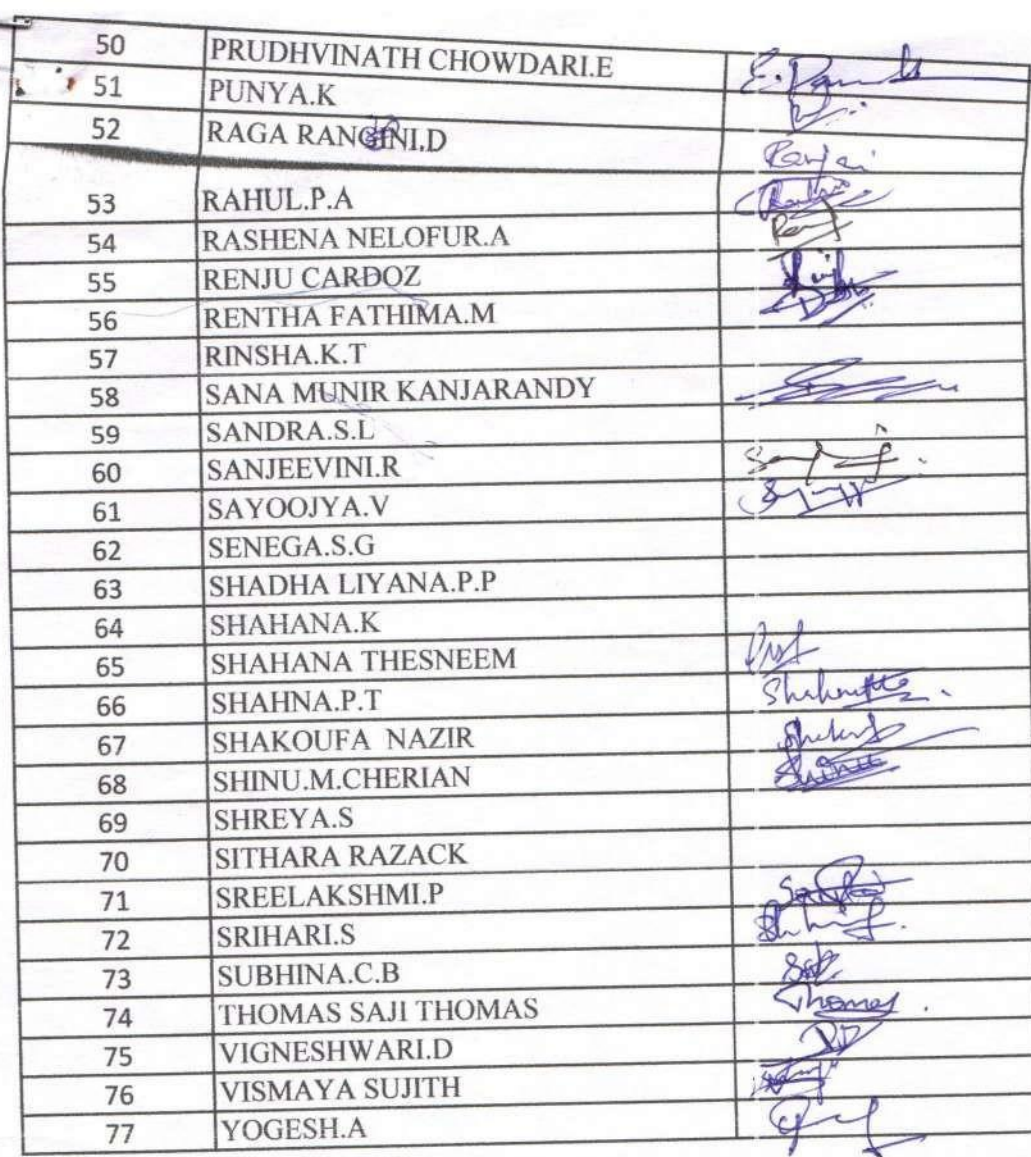 50 PRUDHVINATH CHOWDARI.E
51 PUNYA.K
52 RAGA RANGINI.D Ranjani
53 RAHUL.P.A
54 RASHENA NELOFUR.A
55 RENJU CARDOZ
56 RENTHA FATHIMA.M
57 RINSHA.K.T
58 SANA MUNIR KANJARANDY
59 SANDRA.S.L
60 SANJEEVINI.R
61 SAYOOJYA.V
62 SENEGA.S.G
63 SHADHA LIYANA.P.P
64 SHAHANA.K
65 SHAHANA THESNEEM
66 SHAHNA.P.T
67 SHAKOUFA NAZIR
68 SHINU.M.CHERIAN Shinu
69 SHREYA.S
70 SITHARA RAZACK
71 SREELAKSHMI.P
72 SRIHARI.S
73 SUBHINA.C.B
74 THOMAS SAJI THOMAS Thomas
75 VIGNESHWARI.D
76 VISMAYA SUJITH
77 YOGESH.A